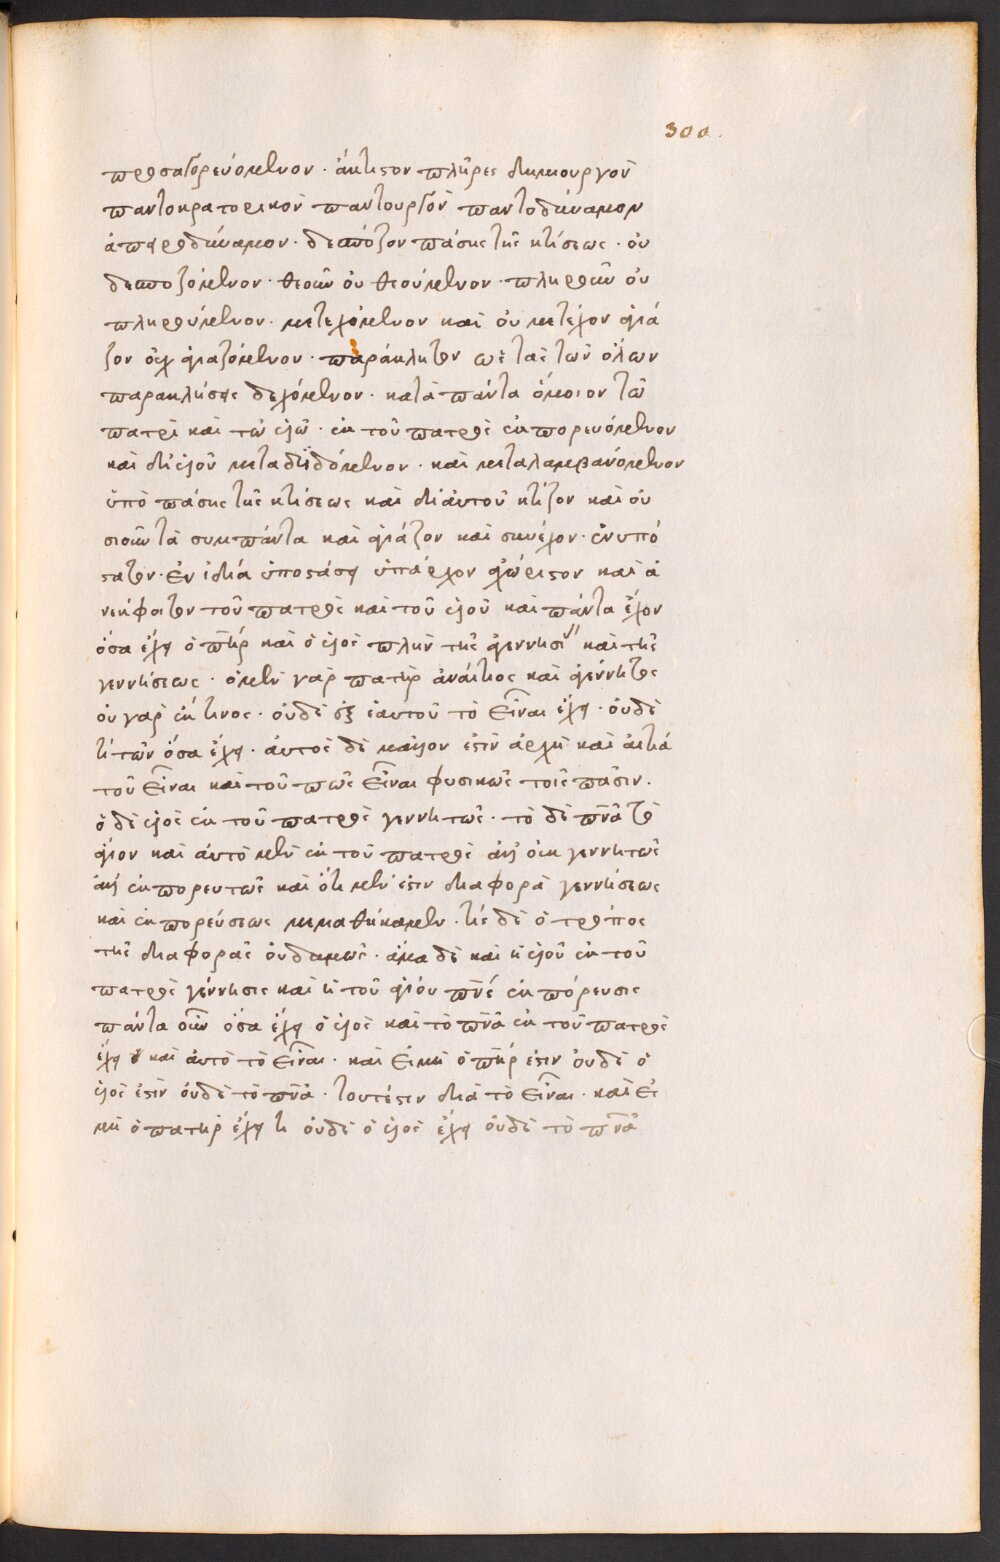 300.
προσαγορευόμενον · ἄκτιστον πλῆρες δημιουργὸν
παντοκρατορικὸν παντουργὸν παντοδύναμον
ἀπειροδύναμον · δεσπόζον πάσης τῆς κτίσεως · οὐ
δεσποζόμενον · θεοῦν οὐ θεούμενον · πληροῦν οὐ
πληρούμενον · μετεχόμενον καὶ οὐ μετέχον ἁγιά
ζον οὐχ ἁγιαζόμενον · παράκλητον ὡς τὰς τῶν ὅλων
παρακλήσεις δεχόμενον · κατὰ πάντα ὅμοιον τῶ
πατρὶ καὶ τῶ υἱῶ · ἐκ τοῦ πατρὸς ἐκπορευόμενον
καὶ δι' υἱοῦ μεταδιδόμενον · καὶ μεταλαμβανόμενον
ὑπὸ πάσης τῆς κτίσεως καὶ δι' αὐτοῦ κτίζον καὶ οὐ
σιοῦν τὰ συμπάντα καὶ ἁγιάζον καὶ συνέχον · ἐνυπό
στατον · ἐν ἰδία ὑποστάσει ὑπάρχον ἀχώριστον καὶ ἀ
νεκφοίτητον τοῦ πατρὸς καὶ τοῦ υἱοῦ καὶ πάντα ἔχον
ὅσα ἔχει ὁ πηρ καὶ ὁ υἱὸς πλὴν τῆς ἀγεννησι καὶ τῆς
γεννήσεως · ὁ μὲν γὰρ πατὴρ ἀναίτιος καὶ ἀγέννητος
οὐ γὰρ ἔκ τινος · οὐδὲ ἐξ ἑαυτοῦ τὸ εἶναι ἔχει · οὐδέ
τι τῶν ὅσα ἔχει · αὐτὸς δὲ μᾶλλον ἐστὶν ἀρχὴ καὶ αἰτία
τοῦ εἶναι καὶ τοῦ πῶς εἶναι φυσικῶς τοῖς πᾶσιν.
ὁ δὲ υἱὸς ἐκ τοῦ πατρὸς γεννητῶς · τὸ δὲ πνᾶ τὸ
ἅγιον καὶ αὐτὸ μὲν ἐκ τοῦ πατρὸς ἀλλ' οὐ γεννητῶς
ἀλλ' ἐκπορευτῶς καὶ ὅτι μὲν ἔστιν διαφορὰ γεννήσεως
καὶ ἐκπορεύσεως μεμαθήκαμεν · τίς δὲ ὁ τρόπος
τῆς διαφορᾶς οὐδαμῶς · ἅμα δὲ καὶ ἡ υἱοῦ ἐκ τοῦ
πατρὸς γέννησις καὶ ἡ τοῦ ἁγίου πνς ἐκπόρευσις
πάντα οὖν ὅσα ἔχει ὁ υἱὸς καὶ τὸ πνᾶ ἐκ τοῦ πατρὸς
ἔχει καὶ αὐτὸ τὸ εἶναι · καὶ εἰ μὴ ὁ πηρ ἐστιν οὐδὲ ὁ
υἱός ἐστιν οὐδὲ τὸ πνᾶ · τουτέστιν διὰ τὸ εἶναι · καὶ εἰ
μὴ ὁ πατὴρ ἔχει τι οὐδὲ ὁ υἱὸς ἔχει οὐδὲ τὸ πνᾶ